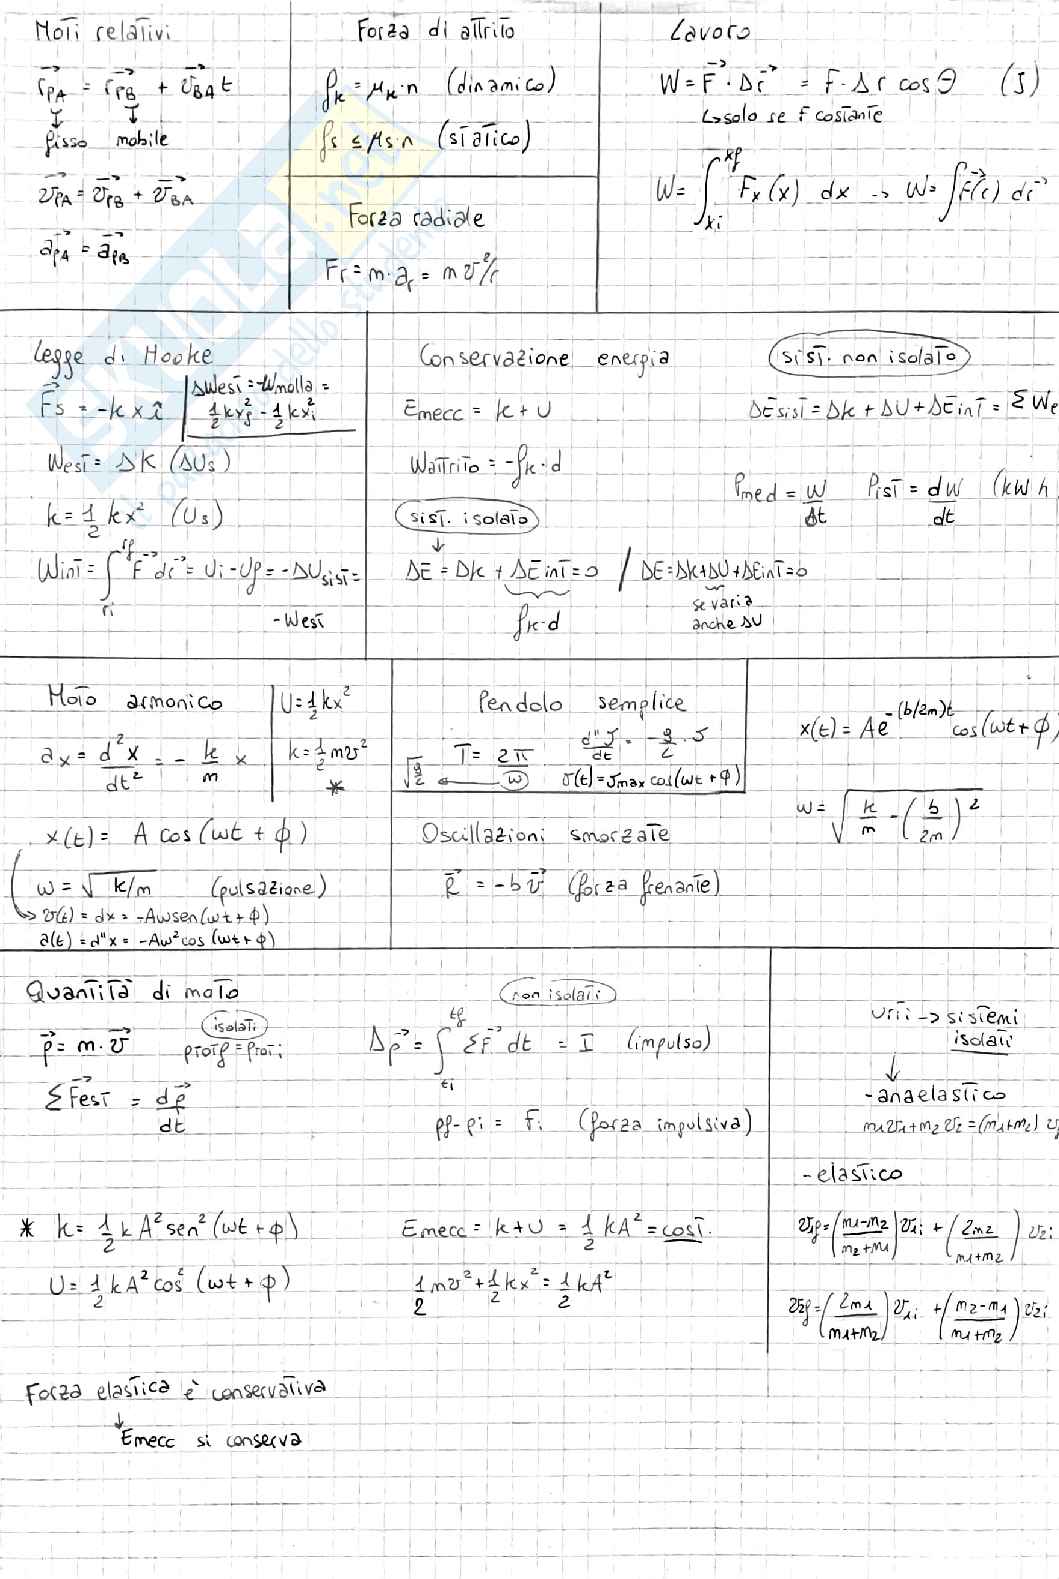 Moti relativi
r⃗PA = r⃗PB + v⃗BA t
↓ ↓
fisso mobile
v⃗PA = v⃗PB + v⃗BA
a⃗PA = a⃗PB
Forza di attrito
fk = μk·n (dinamico)
fs ≤ μs·n (statico)
Forza radiale
Fr = m·ar = m v²/r
Lavoro
W = F⃗ · Δr⃗ = F·Δr cos θ (J)
↳ solo se F costante
W = ∫xi^xf Fx(x) dx → W = ∫F⃗(r) dr⃗
Legge di Hooke
F⃗s = -k x î
ΔWest = -Wmolla =
½kxf² - ½kxi²
West = ΔK (ΔUs)
k = ½ kx² (Us)
Wint = ∫ri^rf F⃗ dr⃗ = Ui - Uf = -ΔUsist =
-West
Conservazione energia
Emecc = k + U
Wattrito = -fk·d
sist. isolato
↓
ΔE = Δk + ΔEint = 0 / ΔE = Δk+ΔU+ΔEint = 0
fk·d
se varia
anche ΔU
sist. non isolato
ΔEsist = Δk + ΔU + ΔEint = ΣWe
Pmed = W/Δt Pist = dW/dt (kW h
Moto armonico
ax = d²x/dt² = - k/m x
U = ½kx²
k = ½mv²
*
x(t) = A cos(ωt + ϕ)
ω = √k/m (pulsazione)
↳ v(t) = dx = -Aωsen(ωt + ϕ)
a(t) = d"x = -Aω²cos(ωt + ϕ)
Pendolo semplice
T = 2π/ω d"ϑ/dt = -g/L · ϑ
√g/L ← ϑ(t) = ϑmax cos(ωt + ϕ)
Oscillazioni smorzate
R⃗ = -b v⃗ (forza frenante)
x(t) = Ae^-(b/2m)t cos(ωt + ϕ)
ω = √k/m - (b/2m)²
Quantità di moto
p⃗ = m·v⃗
isolati
ptotf = ptoti
ΣF⃗est = dp⃗/dt
non isolati
Δp⃗ = ∫ti^tf ΣF⃗ dt = I (impulso)
pf - pi = Fi (forza impulsiva)
urti → sistemi
isolati
↓
- anaelastico
m1v1+m2v2=(m1+m2) vf
- elastico
v1f = (m1-m2/m2+m1) v1i + (2m2/m1+m2) v2i
v2f = (2m1/m1+m2) v1i + (m2-m1/m1+m2) v2i
* k = ½ k A² sen²(ωt + ϕ)
U = ½ kA² cos²(ωt + ϕ)
Emecc = k + U = ½ kA² = cost.
½mv² + ½kx² = ½kA²
Forza elastica è conservativa
↓ Emecc si conserva